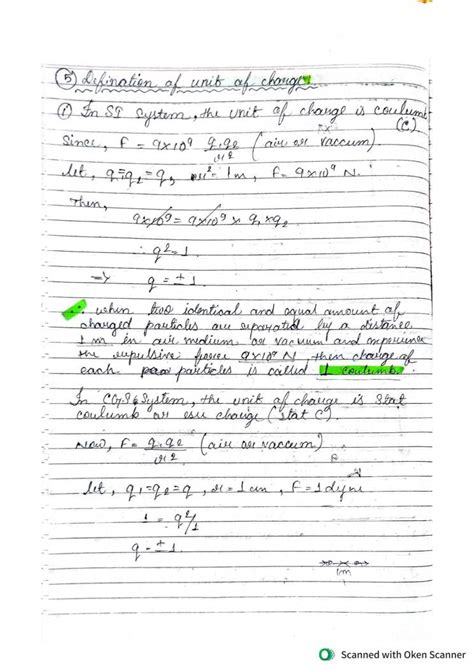 ⑤ Defination of unit of charge:
① In SI system, the unit of charge is coulumb
(C)
Since, F = 9×10⁹ q₁q₂ (air or vaccum).
r²
let, q₁=q₂=q, r²=1m, F=9×10⁹ N.
Then,
9×10⁹ = 9×10⁹ × q₁×q₂
∴ q²=1
⇒ q = ±1.
∴ when two identical and equal amount of
charged particles are separated by a distance
1 m in air medium or vacuum and experience
the repulsive force 9×10⁹ N then charge of
each particles is called 1 coulumb.
In CGS system, the unit of charge is stat
coulumb or esu charge (stat C).
Now, F = q₁q₂ (air or vaccum)
r²
let, q₁=q₂=q, r=1cm, F=1 dyne
1 = q²/1
q = ±1.
1m
Scanned with Oken Scanner